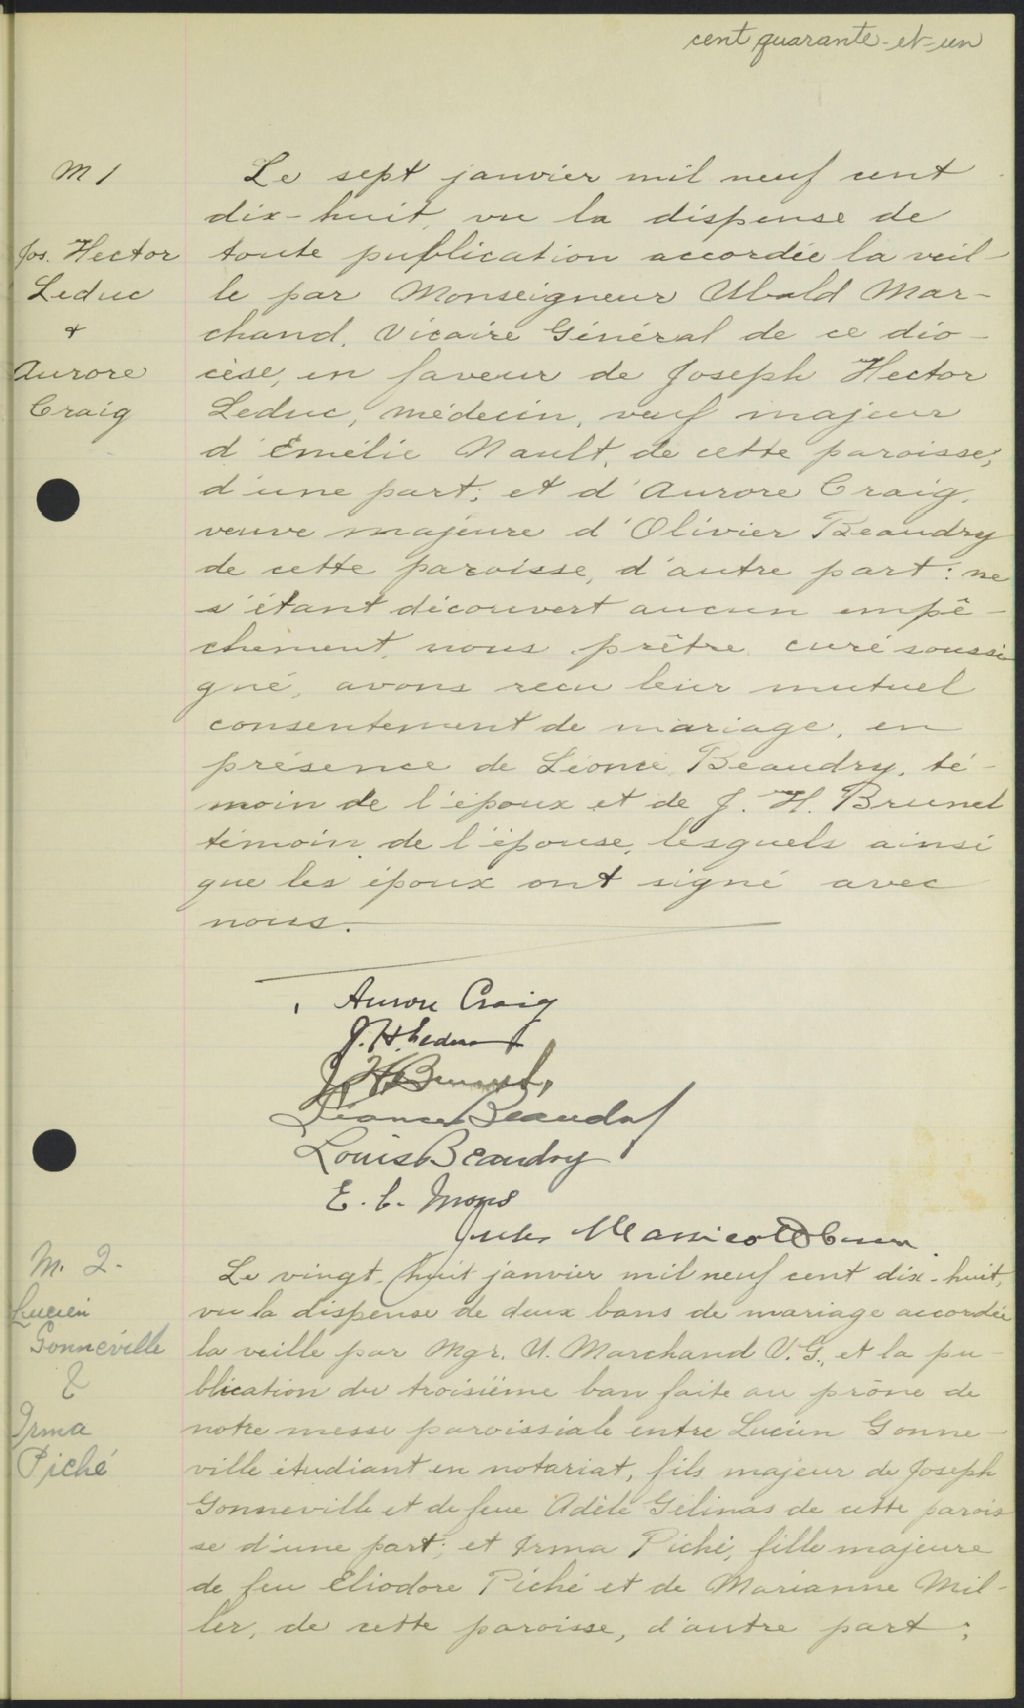 cent quarante-et-un
M 1
Jos. Hector
Leduc
&
Aurore
Craig
Le sept janvier mil neuf cent
dix-huit, vu la dispense de
toute publication accordée la veil-
le par Monseigneur Ubald Mar-
chand, Vicaire Général de ce dio-
cèse, en faveur de Joseph Hector
Leduc, médecin, veuf majeur
d'Emélie Nault, de cette paroisse,
d'une part; et d'Aurore Craig,
veuve majeure d'Olivier Beaudry
de cette paroisse, d'autre part: ne
s'étant découvert aucun empê-
chement, nous prêtre curé soussi
gné, avons reçu leur mutuel
consentement de mariage, en
présence de Léonce Beaudry, té-
moin de l'époux et de J. H. Brunel
témoin de l'épouse, lesquels ainsi
que les époux ont signé avec
nous.
Aurore Craig
J. H. Leduc
J H Brunel,
Léonce Beaudry
Louis Beaudry
E. C.
Jules Massicotte
M. 2.
Lucien
Gonneville
&
Irma
Piché
Le vingt-huit janvier mil neuf cent dix-huit,
vu la dispense de deux bans de mariage accordée
la veille par Mgr. U. Marchand V.G., et la pu-
blication du troisième ban faite au prône de
notre messe paroissiale entre Lucien Gonne-
ville étudiant en notariat, fils majeur de Joseph
Gonneville et de feue Adèle Gélinas de cette parois
se d'une part; et Irma Piché, fille majeure
de feu Eliodore Piché et de Marianne Mil-
ler, de cette paroisse, d'autre part;